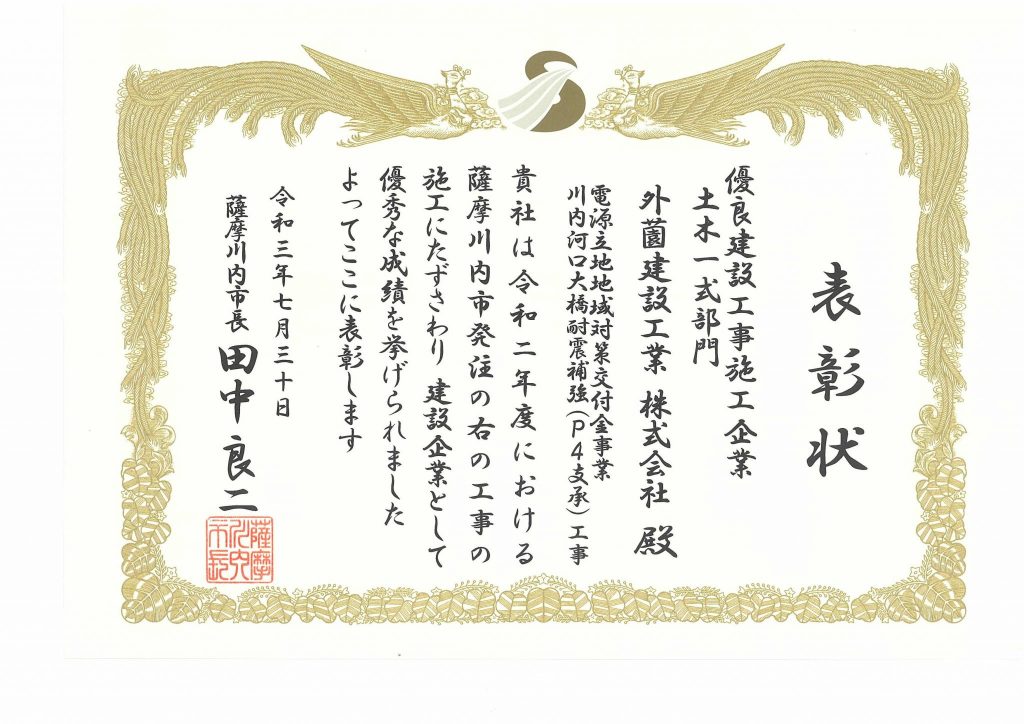 表彰状
優良建設工事施工企業
土木一式部門
外薗建設工業 株式会社 殿
電源立地地域対策交付金事業
川内河口大橋耐震補強(P4支承)工事
貴社は令和二年度における
薩摩川内市発注の右の工事の
施工にたずさわり 建設企業として
優秀な成績を挙げられました
よってここに表彰します
令和三年七月三十日
薩摩川内市長 田中良二
薩摩
川内
市長